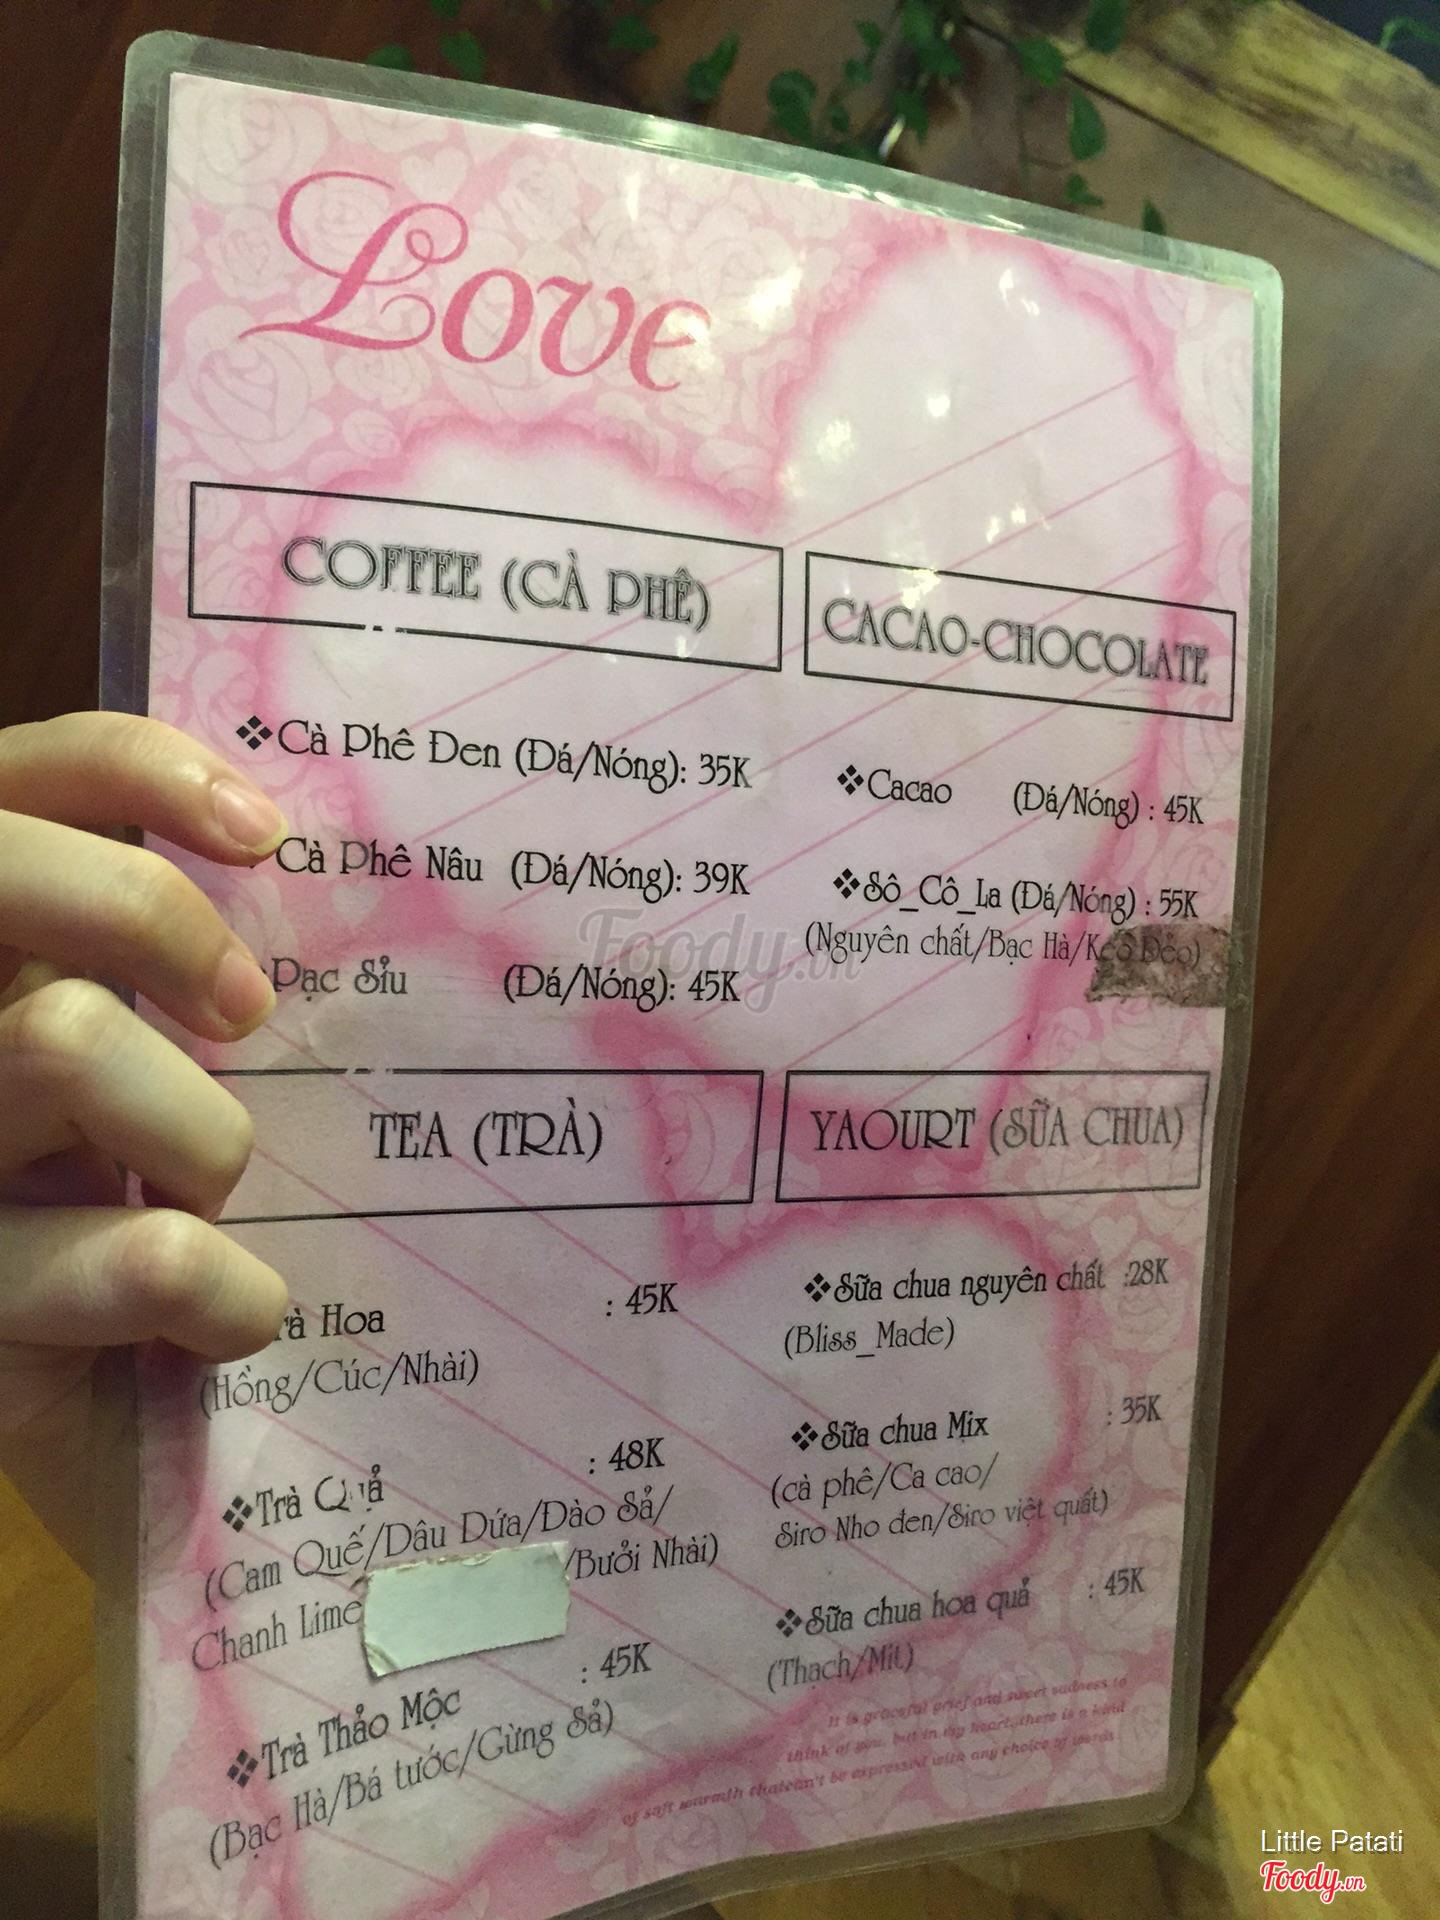 Love
COFFEE (CÀ PHÊ)
Cà Phê Đen (Đá/Nóng): 35K
Cà Phê Nâu (Đá/Nóng): 39K
Bạc Sỉu (Đá/Nóng): 45K
CACAO-CHOCOLATE
Cacao (Đá/Nóng) : 45K
Sô_Cô_La (Đá/Nóng) : 55K
(Nguyên chất/Bạc Hà/Kẹo Dẻo)
TEA (TRÀ)
Trà Hoa : 45K
(Hồng/Cúc/Nhài)
Trà Quả : 48K
(Cam Quế/Dâu Dứa/Đào Sả/
Chanh Lime /Bưởi Nhài)
Trà Thảo Mộc : 45K
(Bạc Hà/Bá tước/Gừng Sả)
YAOURT (SỮA CHUA)
Sữa chua nguyên chất :28K
(Bliss_Made)
Sữa chua Mix : 35K
(cà phê/Ca cao/
Siro Nho đen/Siro việt quất)
Sữa chua hoa quả : 45K
(Thạch/Mít)
It is graceful grief and sweet sadness to
think of you, but in my heart, there is a kind
of soft warmth thatcan't be expressed with any choice of words
Foody.vn
Little Patati
Foody.vn